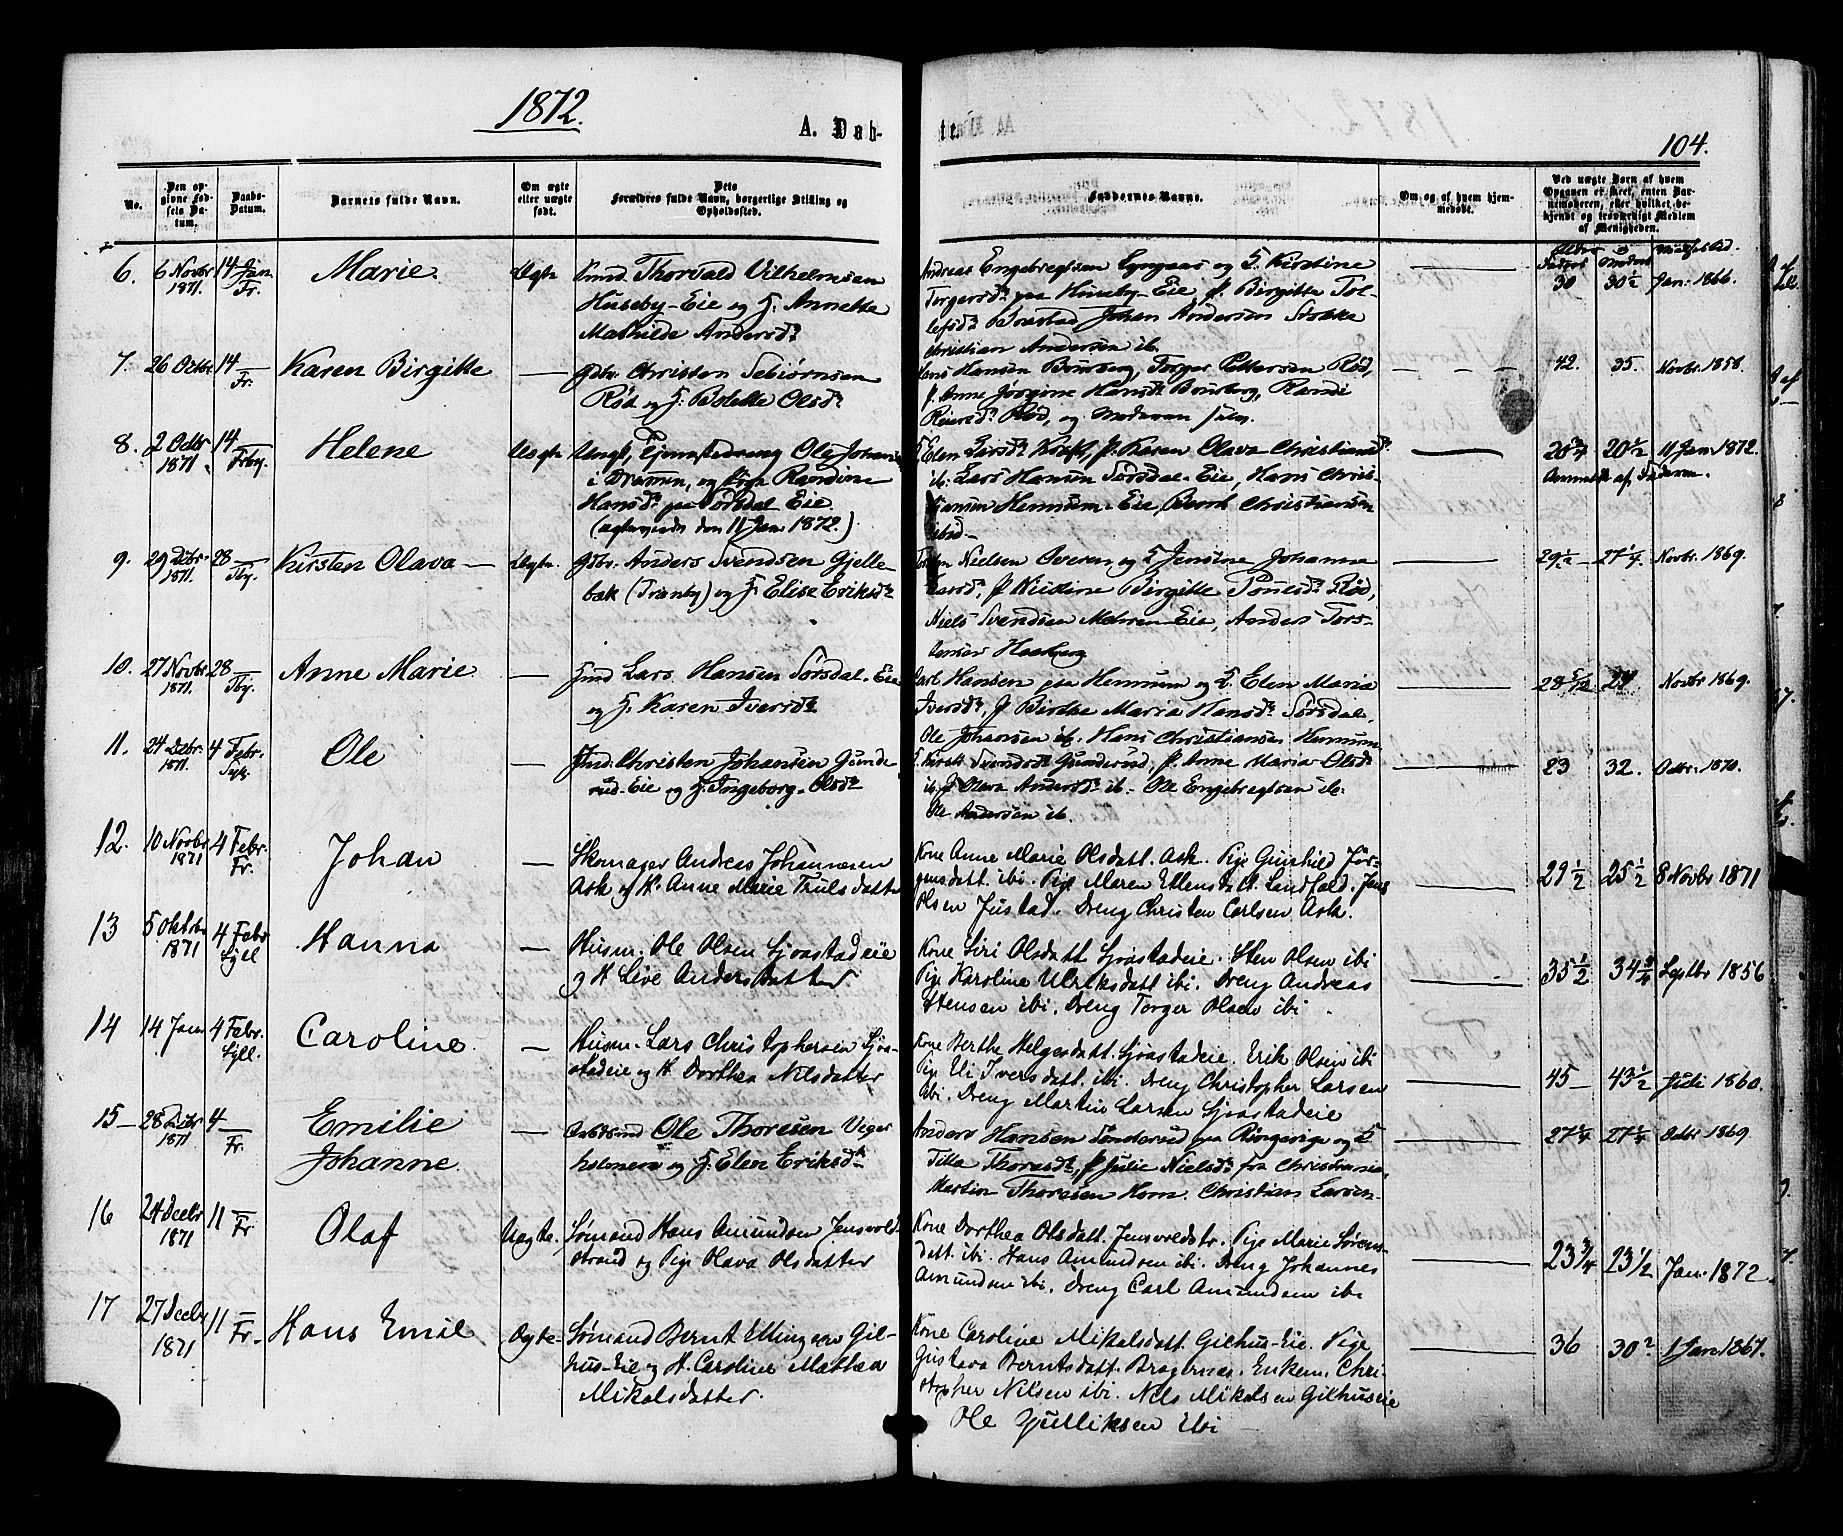 1872.
A. Døb-
te.
104.
No.
Den op-
givne Fød-
sels Da-
tum.
Daabs-
Datum.
Barnets fulde Navn.
Om ægte
eller uægte
født.
Dets
Forældres fulde Navn, borgerlige Stilling og
Opholdssted.
Faddernes Navne.
Om og af hvem hjem-
medøbt.
Ved uægte Børn af hvem
Opgaven er skeet, enten Bar-
nemoderen, eller hvilket be-
kjendt og troværdigt Medlem
af Menigheden.
6. 6 Novbr 1871. 14 Jan. Fr. Marie Ægte
Thorvald Vilhelmsen
Huseby-Eie og H. Annette
Mathilde Andersdr
Andreas Engebregtsen og H. Kirstine
Torgersdr paa Huseby-Eie, P. Birgitte Tol-
lefsdr Johan Andersen Stokke
Christian Andersen ib.
30 30½ Jan. 1866.
7. 26 Octbr 14 Fr. Karen Birgitte —
Gbr. Christen Sebiørnsen
Rød og H. Bolette Olsdr
Hans Hansen Torger Pettersen Rød,
P. Anne Jørgine Hansdr Randi
Reiersdr Rød, og Moderen
42. 35. Novbr. 1858.
8. 2 Octbr 1871. 14 Helene Uægte
Ungk. Tjenestedreng Ole Johans
i Drammen, og Pige Randine
Hansdr paa Sørsdal Eie.
(Ægteviede den 11 Jan. 1872.)
Elen Larsdr P. Karen Olava Christiansdr
ib. Lars Hansen Sørsdal-Eie, Hans Chris-
tiansen Hennum-Eie, Christiansen
ibid —
20½ 11 Jan 1872.
Anmeldt af Faderen.
9. 29 Dcbr 1871. 28 Tby. Kirsten Olava — Ægte
Gbr. Anders Svendsen Gjelle-
bæk (Tranby) og H. Elise Eriksdr
Nielsen Overen og H. Jensine Johanne
P. Kirstine Birgitte Rød,
Niels Svendsen Mehren-Eie, Anders Tors-
tensen
29½ 27¼ Novbr. 1869.
10. 27 Novbr 1871. 28 Tby. Anne Marie —
Lars Hansen Sørsdal-Eie
og H. Karen Iversdr
Hansen paa Hennum og H. Elen Maria
Iversdr, P. Birthe Maria Hansdr Sørsdal,
Ole Johansen ib. Hans Christiansen Hennum
28 5/12 Novbr 1869.
11. 24 Dcbr. 1871. 4 Febr. Ole —
Christen Johansen Gunde-
rud-Eie og H. Ingeborg Olsdr
Svendsdr Gunderud, P. Anne Maria Olsdr
ib. P. Olava Andersdr ib. Ole Engebregtsen ib.
Ole Andersen ib.
23 32. Octbr. 1870.
12. 10 Novbr 1871 4 Febr. Fr. Johan —
Skomager Andreas Johannesen
Ask og H. Anne Marie Trulsdatter
Kone Anne Marie Olsdatt. Ask. Pige Gunhild Jør-
gensdatt. ibi. Pige Maren Ellensdatt. Landfald. Jens
Olsen Justad. Dreng Christen Carlsen Ask.
29½ 25½ 8 Novbr 1871
13 5 Oktobr 1871 4 Febr Syll Hanna —
Husm. Ole Olsen Sjøastadeie
og H Live Andersdatter
Kone Siri Olsdatt Sjøastadeie. Sten Olsen ibi
Pige Karoline Ulriksdatt ibi. Dreng Andreas
Stensen ibi. Dreng Torger Olsen ibi
35½ 34¾ Septbr 1856
14 14 Jan. 4 Febr. Syll. Caroline —
Husm. Lars Christophersen Sjøa-
stadeie og H Dorthea Nilsdatter
Kone Berthe Helgesdatt. Sjøastadeie. Erik Olsen ibi
Pige Eli Iversdatt. ibi. Dreng Christopher Larsen
ibi. Dreng Martin Larsen Sjøastadeie
45 — 43½ Juli 1860.
15 — 28 Dcbr 1871 4 — Fr. Emilie
Johanne. —
Ole Thoresen Viger
holmen og H. Elen Eriksdr
Anders Hansen Sønderud paa Ringerige og H
Tilla Thoresdr, P. Julie Nielsdr fra Christiania
Martin Thoresen Horn. Christian Larsen
27¼ 27¼ Octbr 1869
16 24 Decbr 1871 11 Fr Olaf Uægte.
Sømand Hans Amundsen Jensvold
strand og Pige Olava Olsdatter
Kone Dorthea Olsdatt. Jensvoldstr. Pige Marie Sørens-
datt. ibi. Hans Amundsen ibi. Dreng Johannes
Amundsen ibi. Dreng Carl Amundsen ibi
23¾ 23½ Jan. 1872.
17 27 Decbr 1871 11 Fr. Hans Emil Ægte
Sømand Bernt Ellingsen Gil-
hus-Eie og H. Caroline Mathea
Mikalsdatter.
Kone Caroline Mikalsdatt. Gilhus-Eie. Pige
Gustava Berntsdatt. Bragernæs. Enkem. Chri-
stopher Nilsen ibi. Nils Mikalsen Gilhuseie
Ole Gulliksen ibi
36 30 1 Jan 1867.